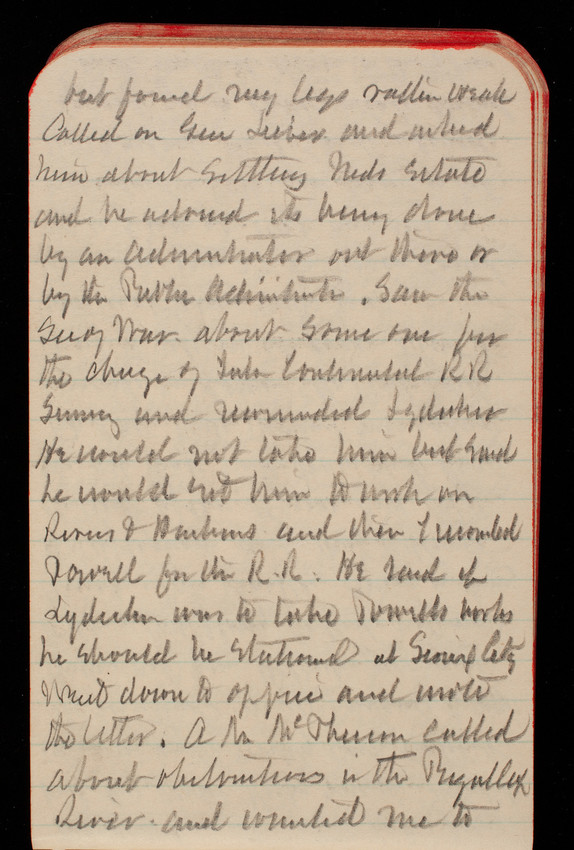 but found my legs rather weak
Called on Gen Lieber and asked
him about settling Neds Estate
and he advised its being done
by an Administrator out there or
by the Public Administrator. Saw the
Secy War about some one for
the charge of Inter Continental RR
Survey and recommended Lydecker
He would not take him but said
he would set him to work on
Rivers & Harbors and then I recomded
Powell for the R.R. He said if
Lydecker was to take Powells works
he should be stationed at Sioux City
Went down to office and wrote
the letter. A Mr McPherson called
about obstructions in the Puyallup
River and wanted me to